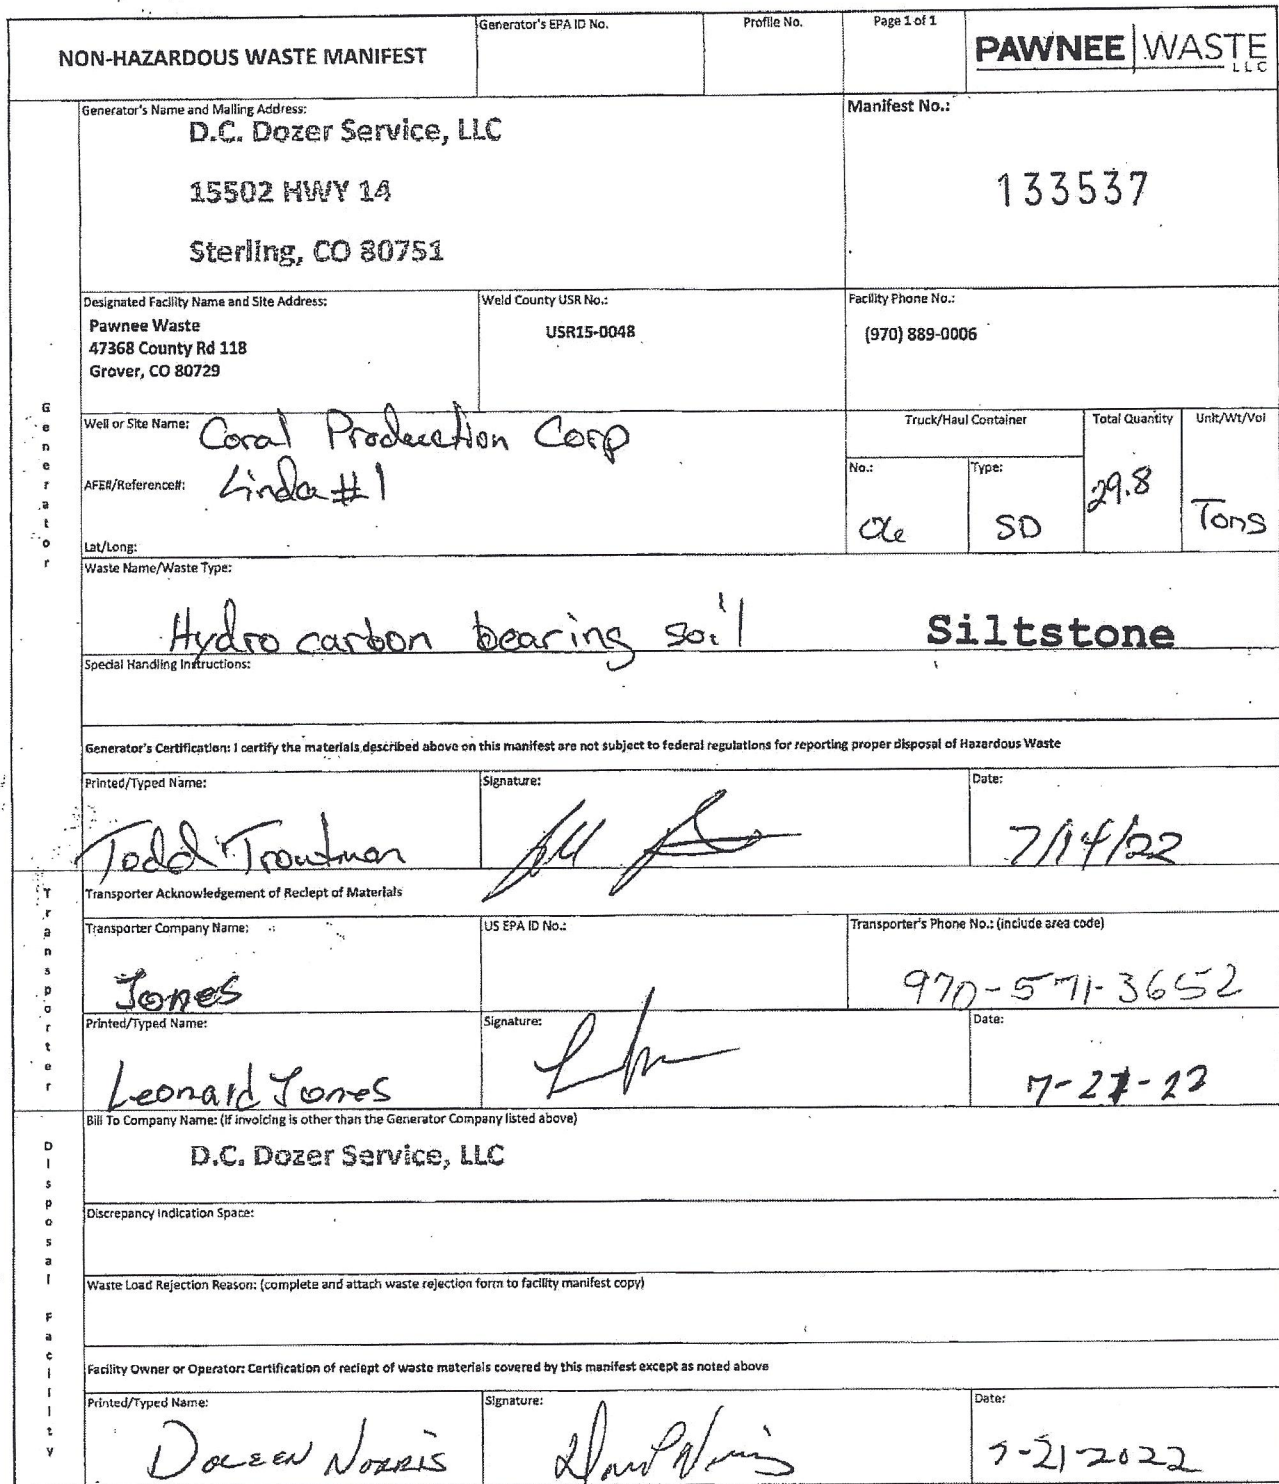 NON-HAZARDOUS WASTE MANIFEST
Generator's EPA ID No.
Profile No.
Page 1 of 1
PAWNEE WASTE
LLC
Generator's Name and Mailing Address:
D.C. Dozer Service, LLC
15502 HWY 14
Sterling, CO 80751
Manifest No.:
133537
Designated Facility Name and Site Address:
Pawnee Waste
47368 County Rd 118
Grover, CO 80729
Weld County USR No.:
USR15-0048
Facility Phone No.:
(970) 889-0006
Generator
Well or Site Name: Coral Production Corp
AFE#/Reference#: Linda #1
Lat/Long:
Truck/Haul Container
No.:
Type:
SD
Total Quantity
29.8
Unit/Wt/Vol
Tons
Waste Name/Waste Type:
Hydro carbon bearing soil Siltstone
Special Handling Instructions:
Generator's Certification: I certify the materials described above on this manifest are not subject to federal regulations for reporting proper disposal of Hazardous Waste
Printed/Typed Name:
Todd Troutman
Signature:
Date:
7/14/22
Transporter
Transporter Acknowledgement of Reciept of Materials
Transporter Company Name:
Jones
US EPA ID No.:
Transporter's Phone No.: (include area code)
970-571-3652
Printed/Typed Name:
Leonard Jones
Signature:
Date:
7-21-22
Disposal Facility
Bill To Company Name: (if invoicing is other than the Generator Company listed above)
D.C. Dozer Service, LLC
Discrepancy Indication Space:
Waste Load Rejection Reason: (complete and attach waste rejection form to facility manifest copy)
Facility Owner or Operator: Certification of reciept of waste materials covered by this manifest except as noted above
Printed/Typed Name:
Doreen Norris
Signature:
Date:
7-21-2022